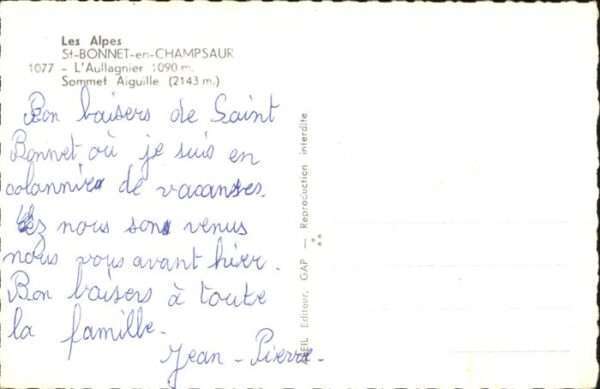 Les Alpes
St-BONNET-en-CHAMPSAUR
1077 - L'Aullagnier 1090 m.
Sommet Aiguille (2143 m.)
Bon baisers de Saint
Bonnet où je suis en
colonnie de vacances.
nous sons venus
nous avant hier.
Bon baisers à toute
la famille.
Jean-Pierre.
Editeur, GAP — Reproduction interdite